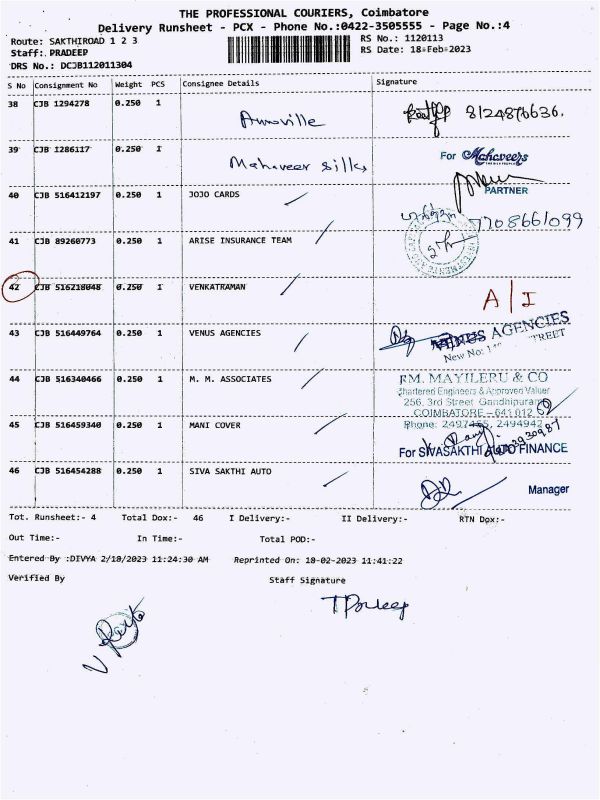 THE PROFESSIONAL COURIERS, Coimbatore
Delivery Runsheet - PCX - Phone No.:0422-3505555 - Page No.:4
Route: SAKTHIROAD 1 2 3
RS No.: 1120113
Staff: PRADEEP
RS Date: 18-Feb-2023
DRS No.: DCJB112011304
S No Consignment No Weight PCS Consignee Details Signature
38 CJB 1294278 0.250 1 8124876636.
39 CJB 1286117 0.250 1 Mahaveer silks For Mahaveers
PARTNER
40 CJB 516412197 0.250 1 JOJO CARDS
7708661099
41 CJB 89260773 0.250 1 ARISE INSURANCE TEAM
42 CJB 516218048 0.250 1 VENKATRAMAN A/I
43 CJB 516449764 0.250 1 VENUS AGENCIES VENUS AGENCIES
New No: STREET
44 CJB 516340466 0.250 1 M. M. ASSOCIATES RM. MAYILERU & CO
Chartered Engineers & Approved Valuer
256, 3rd Street Gandhipuram
COIMBATORE - 641 012
45 CJB 516459340 0.250 1 MANI COVER Phone: 2497455, 2494942
For SIVASAKTHI AUTO FINANCE
46 CJB 516454288 0.250 1 SIVA SAKTHI AUTO Manager
Tot. Runsheet:- 4 Total Dox:- 46 I Delivery:- II Delivery:- RTN Dox:-
Out Time:- In Time:- Total POD:-
Entered By :DIVYA 2/18/2023 11:24:30 AM Reprinted On: 18-02-2023 11:41:22
Verified By Staff Signature
T Pradeep